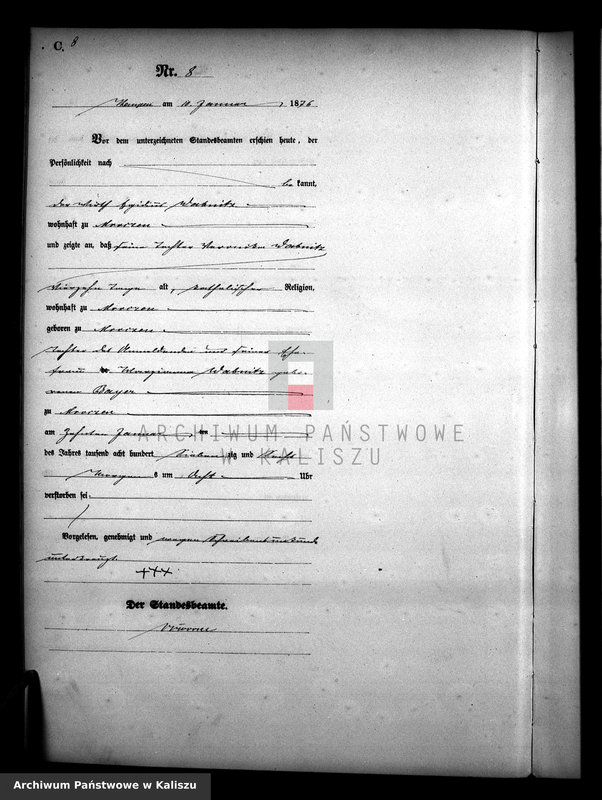 C. 8
Nr. 8
Kempen am 10. Januar 1876
Vor dem unterzeichneten Standesbeamten erschien heute, der
Persönlichkeit nach
be kannt,
der Wirth Egidius Wabnitz
wohnhaft zu
und zeigte an, daß seine Tochter Veronika Wabnitz
vierzehn Tage alt, katholischer Religion,
wohnhaft zu
geboren zu
Tochter des Anmeldenden und seiner Ehe-
frau Wabnitz gebo-
renen Bayer
zu
am zehnten Januar
des Jahres tausend acht hundert sieben zig und sechs
Morgens um acht Uhr
verstorben sei.
Vorgelesen, genehmigt und wegen Schreibensunkunde
unterkreuzt
+++
Der Standesbeamte.
ARCHIWUM PAŃSTWOWE
W KALISZU
Archiwum Państwowe w Kaliszu